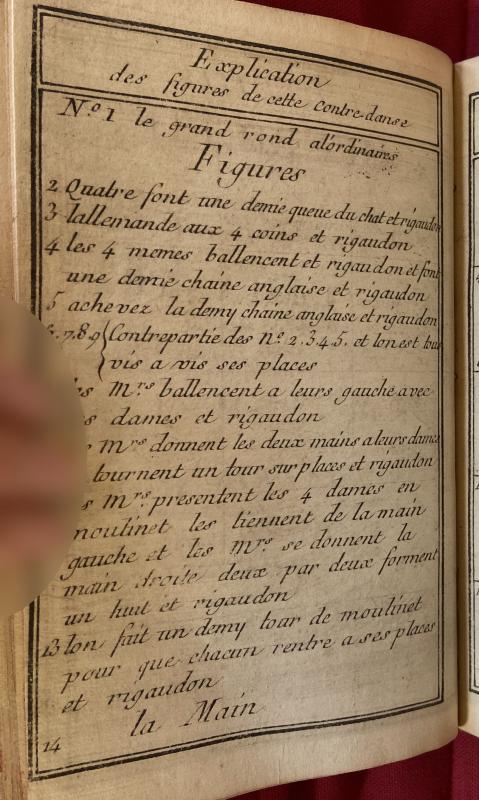 Explication
des figures de cette contre-danse
N.º 1 le grand rond al'ordinaires
Figures
2 Quatre font une demie queue du chat et rigaudon
3 lallemande aux 4 coins et rigaudon
4 les 4 memes ballencent et rigaudon et font
une demie chaine anglaise et rigaudon
5 achevez la demy chaine anglaise et rigaudon
.7.8.9 { Contrepartie des nº 2.3.4.5. et lon est tous
vis a vis ses places
Mrs ballencent a leurs gauche avec
dames et rigaudon
Mrs donnent les deux mains a leurs dames
tournent un tour sur places et rigaudon
Mrs presentent les 4 dames en
moulinet les tiennent de la main
gauche et les Mrs se donnent la
main droite deux par deux forment
un huit et rigaudon
13 lon fait un demy tour de moulinet
pour que chacun rentre a ses places
et rigaudon
la Main
14